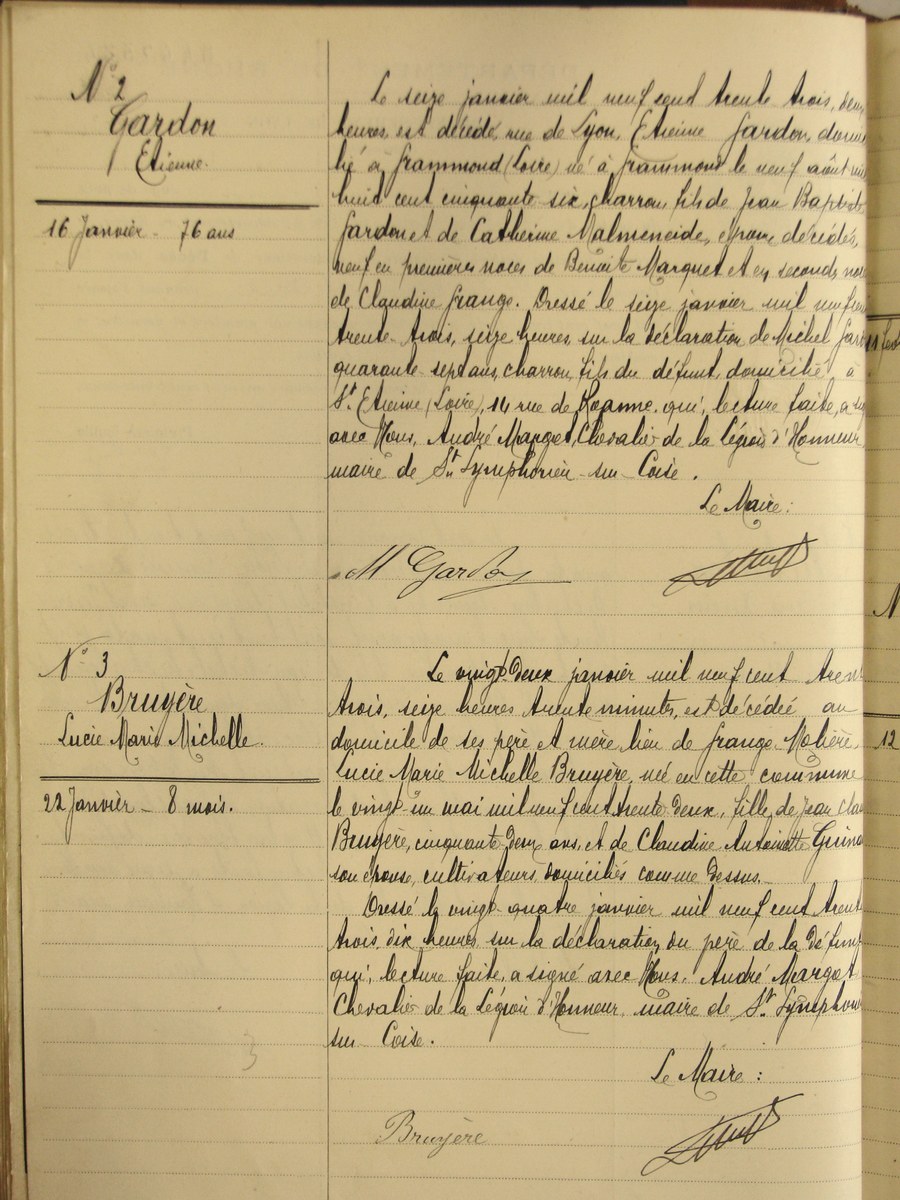 N° 2
Gardon
Etienne.
16 Janvier - 76 ans
Le seize janvier mil neuf cent trente trois, deux
heures, est décédé, rue de Lyon, Etienne Gardon, domici
lié à Grammond (Loire) né à Grammond le neuf août mil
huit cent cinquante six, charron, fils de Jean Baptiste
Gardon et de Catherine époux décédés,
veuf en premières noces de Benoite Marquet et en secondes noces
de Claudine Grange. Dressé le seize janvier mil neuf cent
trente-trois, seize heures, sur la déclaration de Michel Gardon
quarante-sept ans, charron, fils du défunt, domicilié à
St Etienne (Loire), 14 rue de Roanne. qui, lecture faite, a sig
avec Nous, André Margot, Chevalier de la légion d'Honneur
maire de St Symphorien-sur-Coise.
Le Maire:
M Gardon
N° 3
Bruyère
Lucie Marie Michelle.
22 Janvier - 8 mois.
Le vingt-deux janvier mil neuf cent tren
trois, seize heures trente minutes, est décédée au
domicile de ses père et mère, lieu de Grange-Molière,
Lucie Marie Michelle Bruyère, née en cette commune
le vingt un mai mil neuf cent trente deux, fille de Jean Clau
Bruyère, cinquante deux ans, et de Claudine Antoinette
son épouse, cultivateurs, domiciliés comme dessus.
Dressé le vingt-quatre janvier mil neuf cent trent
trois, dix heures, sur la déclaration du père de la défun
qui, lecture faite, a signé avec Nous, André Margot
Chevalier de la Légion d'Honneur, maire de St Symphor
sur-Coise.
Le Maire :
Bruyère
3
11
N
12